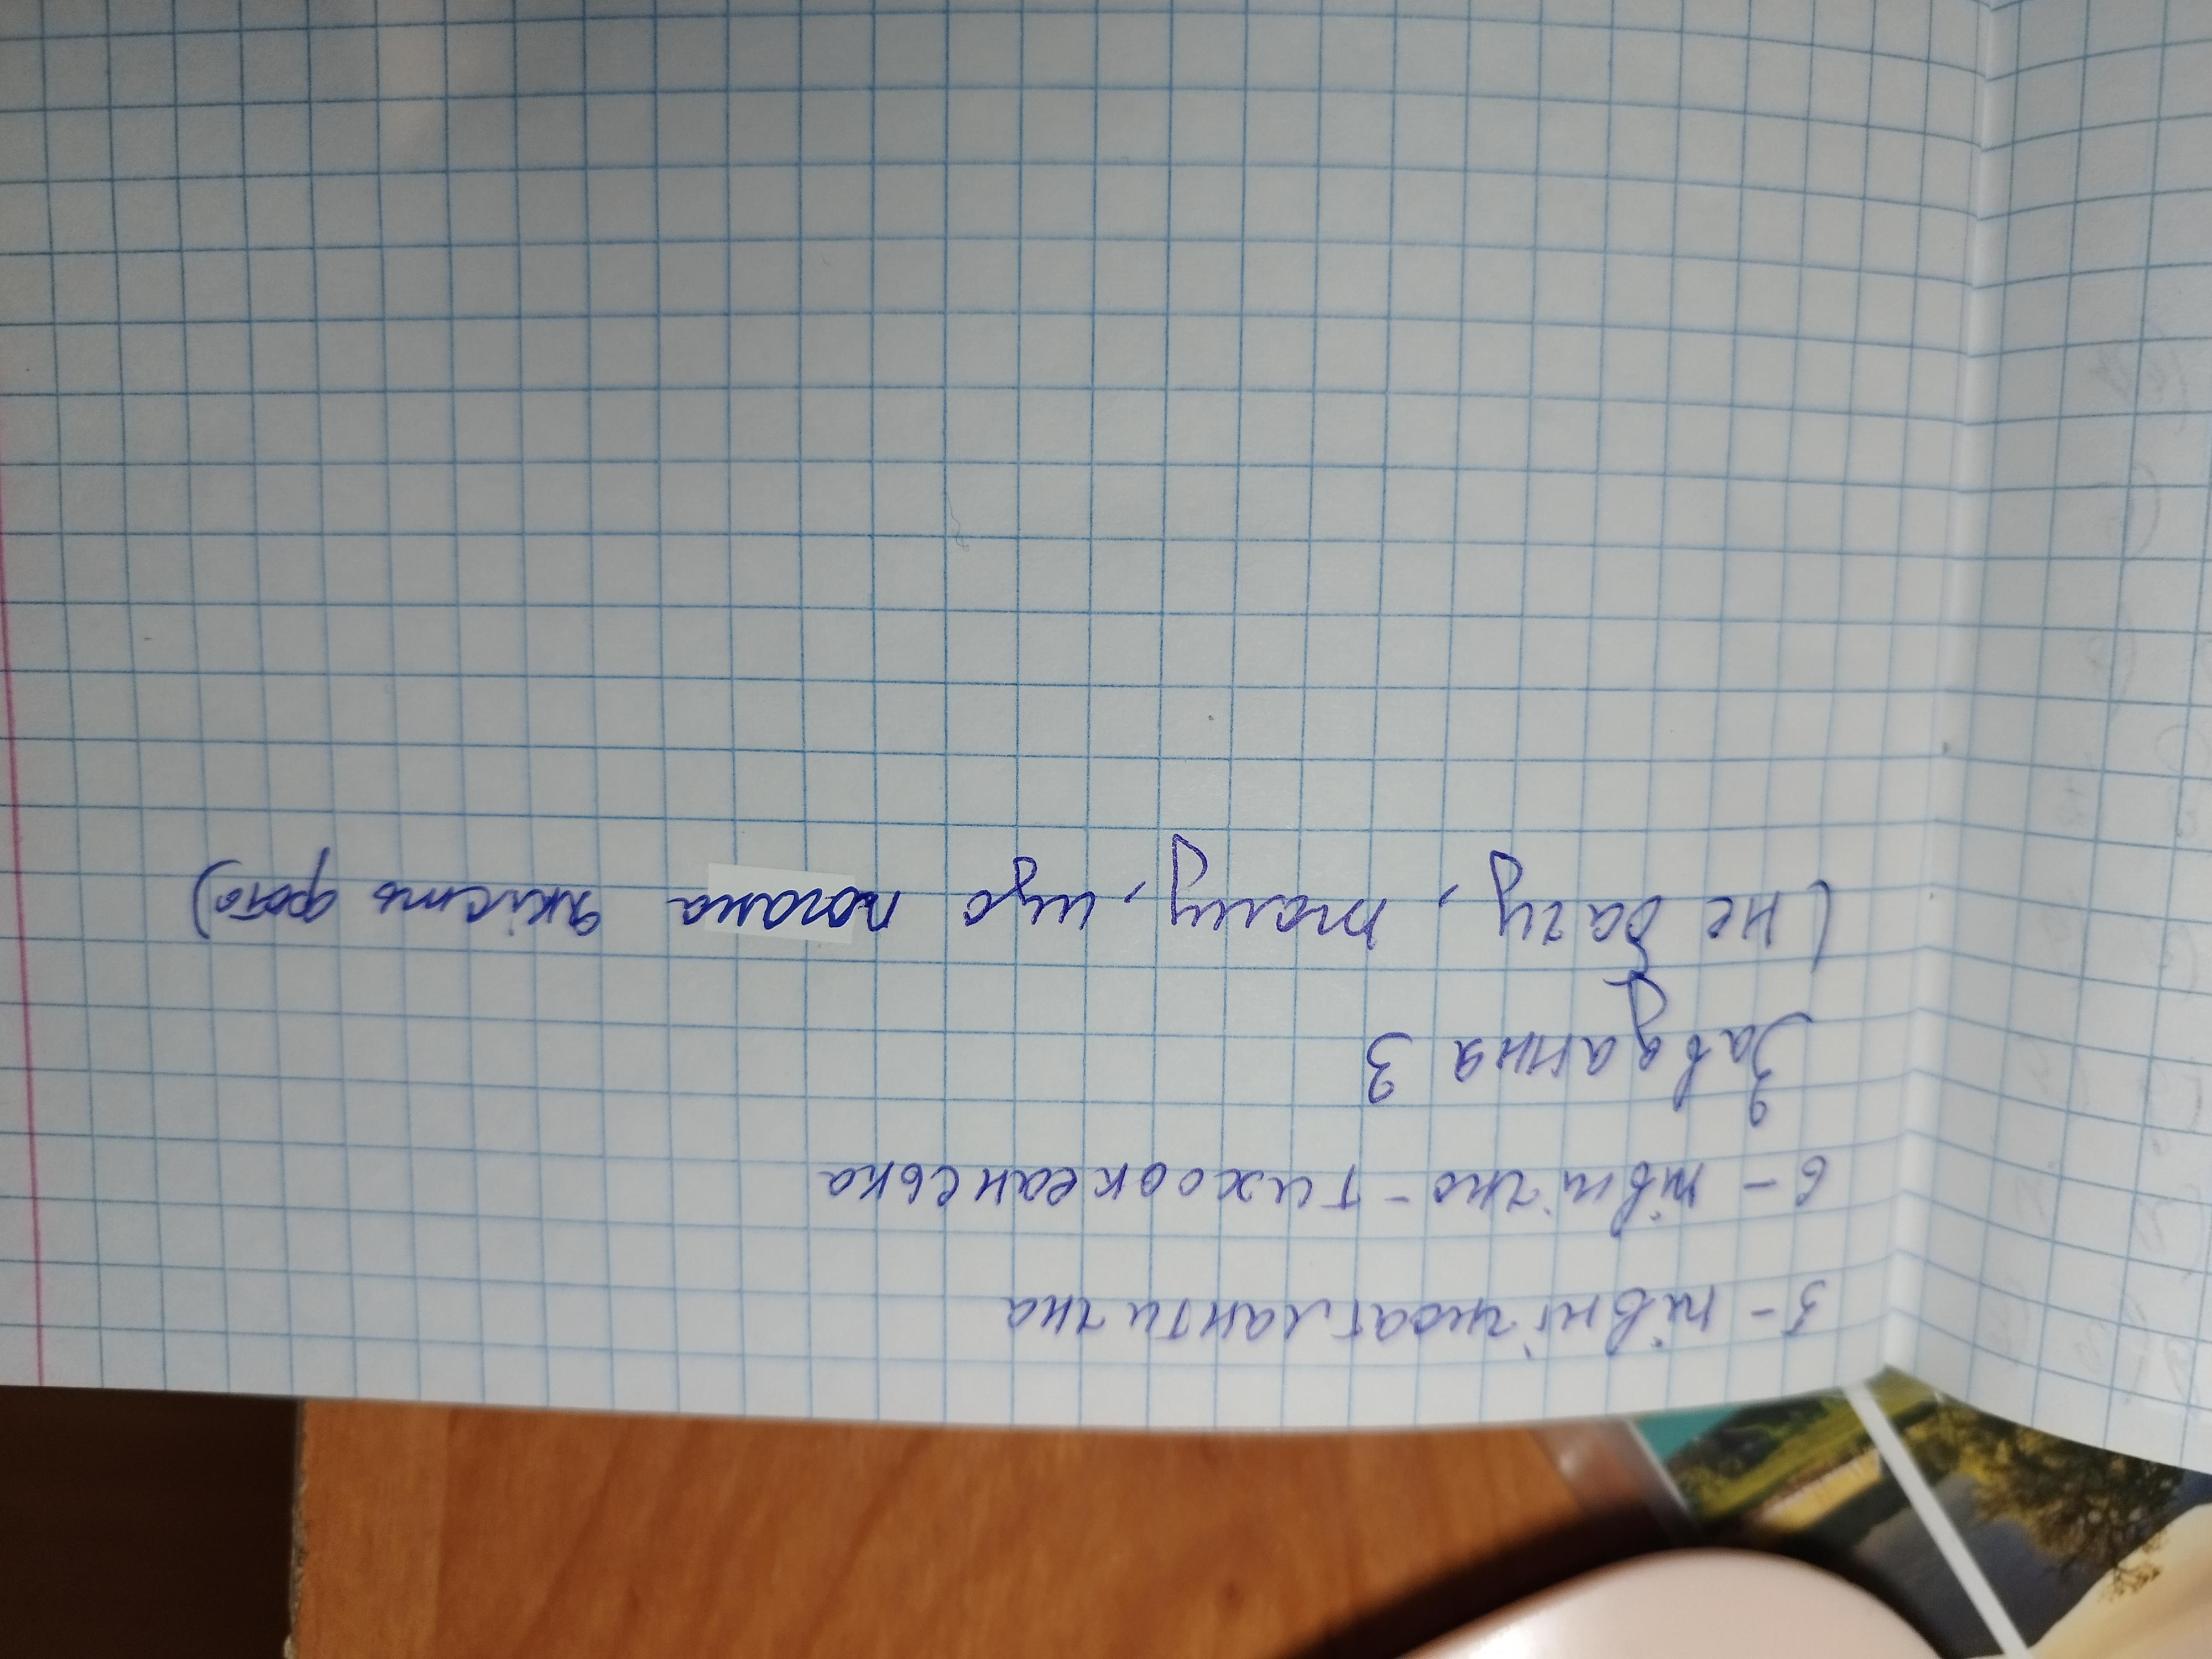 5 - північноатлантична
6 - північно - тихоокеанська
Завдання 3
(не бачу, тому, що погана якість фото)